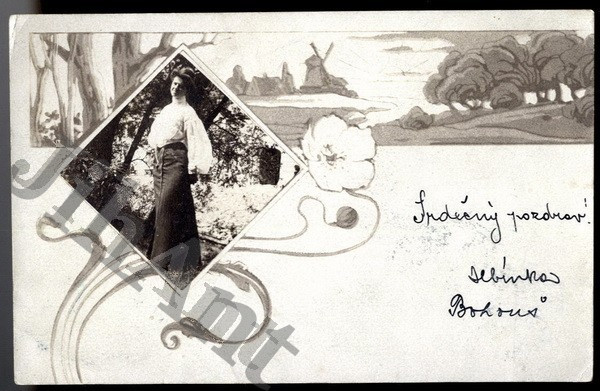 Srdečný pozdrav!
Bohouš
JihAmt